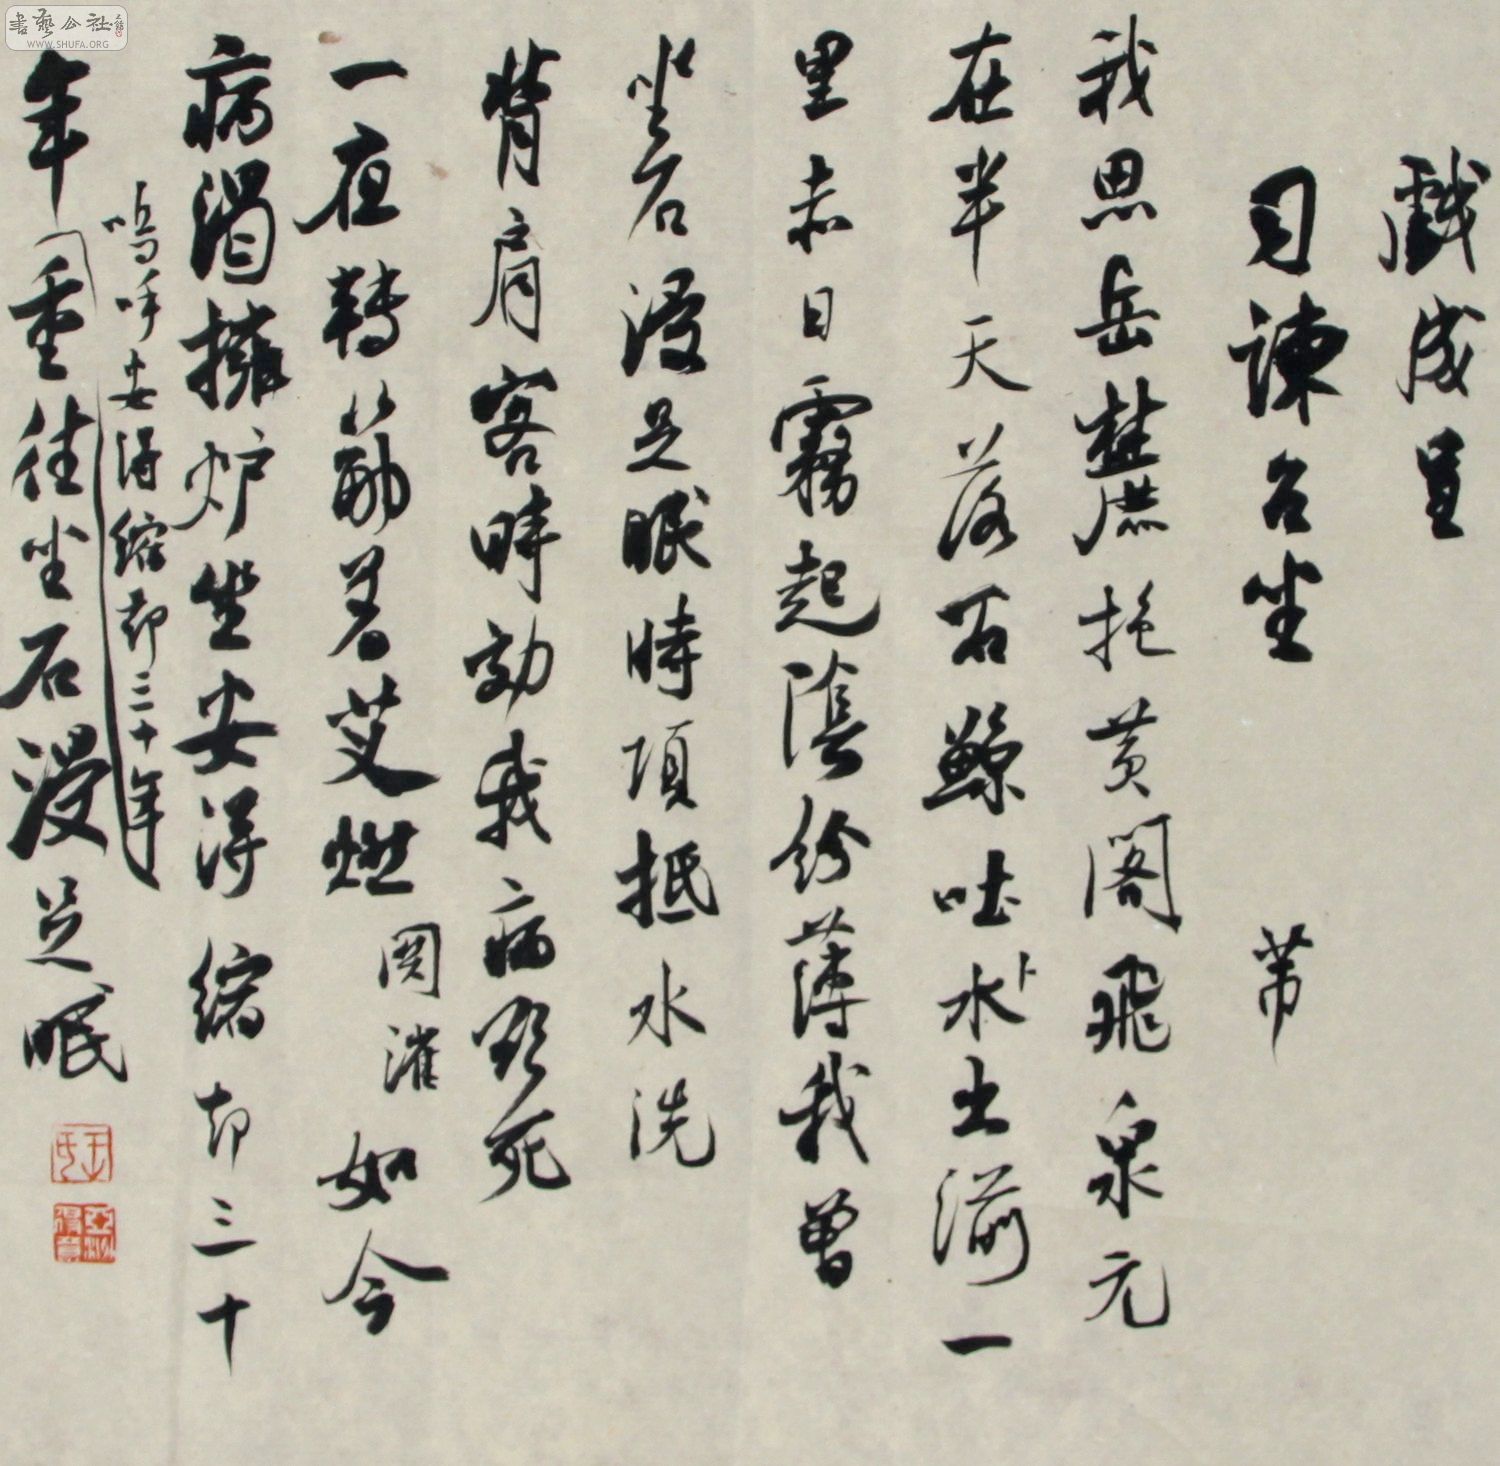 戲成呈
司諫台坐 芾
我思岳麓抱黄閣飛泉元
在半天落石鯨吐水出湔一
里赤日霧起陰紛薄我曾
坐石浸足眠時項抵水洗
背肩客時効我病欲死
一夜轉筋著艾燃 関灌 如今
病渴擁炉坐安得縮却三十
嗚呼安得縮却三十年
年重往坐石浸足眠
書藝公社
WWW.SHUFA.ORG